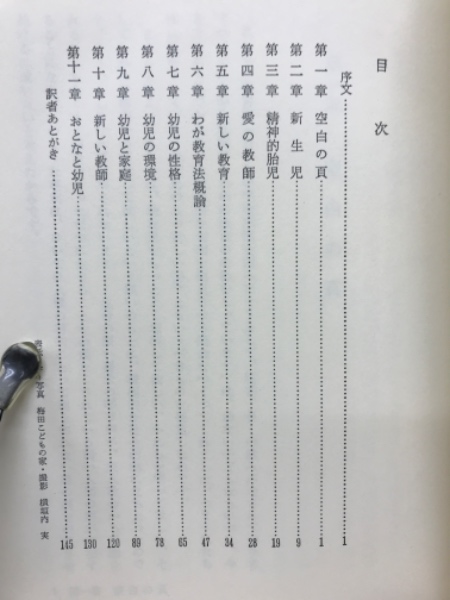 目次
序文 1
第一章 空白の頁 1
第二章 新生児 9
第三章 精神的胎児 19
第四章 愛の教師 28
第五章 新しい教育 34
第六章 わが教育法概論 47
第七章 幼児の性格 65
第八章 幼児の環境 78
第九章 幼児と家庭 89
第十章 新しい教師 120
第十一章 おとなと幼児 130
訳者あとがき 145
写真 梅田こどもの家・撮影 垣内 実